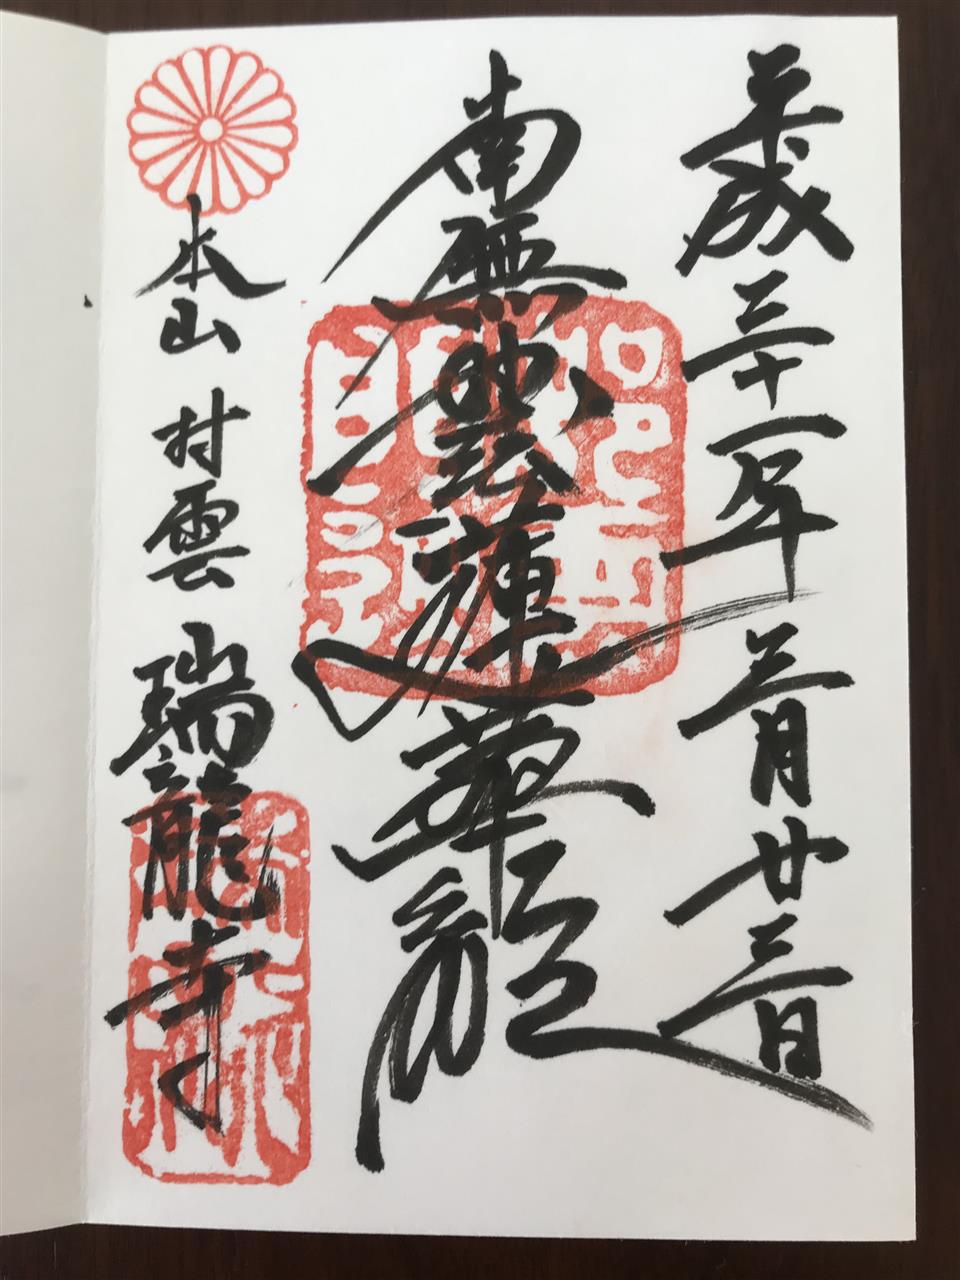 平成三十一年三月廿三日
南無妙法蓮華経
本山 村雲 瑞龍寺